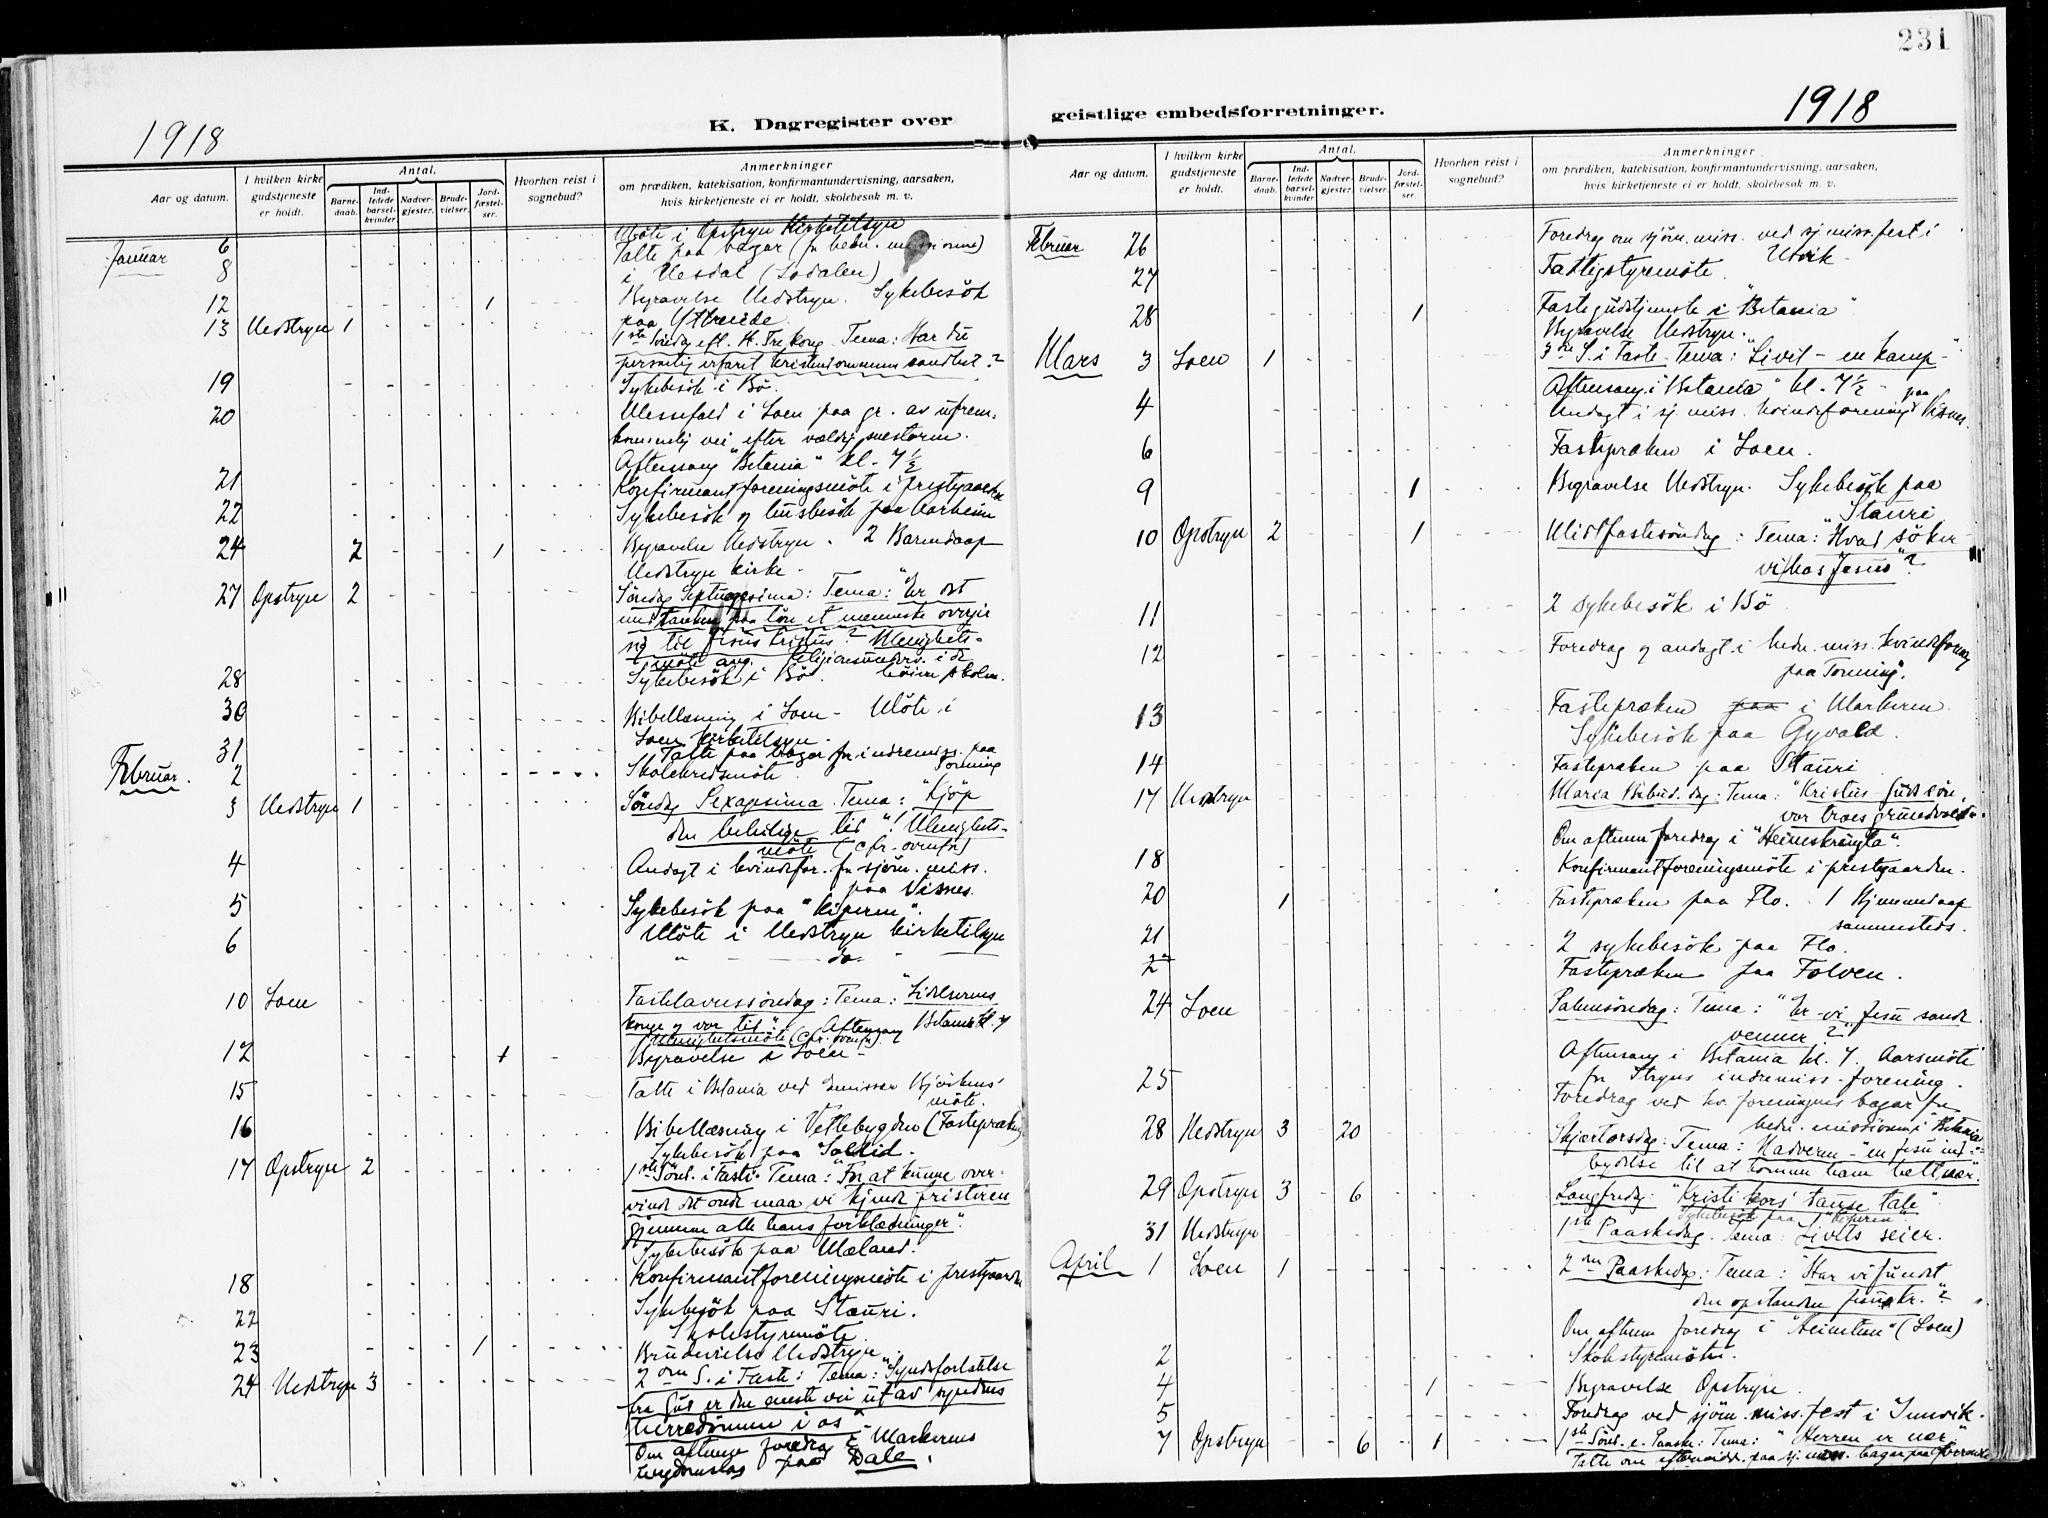 231
1918
1918
K. Dagregister over
geistlige embedsforretninger.
Aar og datum.
I hvilken kirke gudstjeneste er holdt.
Antal.
Barne-daab.
Ind-ledede barsel-kvinder
Nadver-gjester.
Brude-vielser.
Jord-fæstel-ser.
Hvorhen reist i sognebud?
Anmerkninger
om prædiken, katekisation, konfirmantundervisning, aarsaken,
hvis kirketjeneste ei er holdt, skolebesøk m. v.
Januar 6 Møte i Opstryn Kirketilsyn
8 Talte paa bazar (for hedn. missionen)
i Nesdal (Lodalen)
12 1 Begravelse Nedstryn. Sykebesök
paa Ytreeide
13 Nedstryn 1 1ste Söndag eft. H. Tre Kong. Tema: Har du
personlig erfaret kristendommens sandhet?
19 Sykebesök i Bö.
20 Messefald i Loen paa gr. av ufrem-
kommelig vei efter vældig snestorm.
Aftensang "Betania" kl. 7 1/2
21 Konfirmantforeningsmöte i prestgaarden
22 Sykebesök og husbesök paa Aarheim
24 2 1 Begravelse Nedstryn. 2 Barnedaap
Nedstryn kirke.
27 Opstryn 2 Söndag Septuagesima: Tema: "Er det
umaken paa lön et menneske overgir
sig til Jesus Kristus? Menighets-
möte ang. Religionsunderv. i de
höiere skoler.
28 Sykebesök i Bö.
30 Bibellæsning i Loen - Möte i
Loen Kirketilsyn.
31 Talte paa bazar for indremiss. paa
Tonning
Februar. 2 Skolekredsmöte
3 Nedstryn 1 Söndag Sexagesima. Tema: "Kjöp
den beleilige tid"! Menighets-
möte (cfr. ovenfor)
4 Andagt i kvindefor. for sjöm. miss.
paa Visnes.
5 Sykebesök paa "Kiperen".
Möte i Nedstryn kirketilsyn
6 " - do. - "
10 Loen Fastelavnssöndag: Tema: "Lidelsernes
konge og vor tid". Aftensang Betania kl. 7
Menighetsmöte (cfr. ovenfor).
12 1 Begravelse i Loen
15 Talte i Betania ved Emissær
möte.
16 Bibellæsning i Vetlebygden (Fastepræken)
Sykebesök paa Solhid.
17 Opstryn 2 1ste Sönd. i Faste. Tema: "For at kunne over-
vinde det onde maa vi kjende fristeren
gjennem alle hans forklædninger".
Sykebesök paa Mæland.
18 Konfirmantforeningsmöte i prestgaarden
22 Sykebesök paa Stauri.
Skolestyremöte.
23 1 Brudevielse Nedstryn
24 Nedstryn 3 2den S. i Faste: Tema: "Syndsforlatelse
fra Gud er den eneste vei ut av syndens
herredömme i os"
Om aftenen foredrag i Markenes
ungdomslag paa Dale.
Aar og datum.
I hvilken kirke gudstjeneste er holdt.
Antal.
Barne-daab.
Ind-ledede barsel-kvinder
Nadver-gjester.
Brude-vielser.
Jord-fæstel-ser.
Hvorhen reist i sognebud?
Anmerkninger
om prædiken, katekisation, konfirmantundervisning, aarsaken,
hvis kirketjeneste ei er holdt, skolebesøk m. v.
Februar 26 Foredrag om sjöm. miss. ved sj. miss. fest i
Utvik
27 Fattigstyremöte.
28 1 Fastegudstjeneste i "Betania"
Begravelse Nedstryn.
Mars 3 Loen 1 3die S. i Faste. Tema: "Livet - en kamp-"
Aftensang i "Betania" kl. 7 1/2
4 Andagt i sj. miss. kvindeforening paa Visnes.
6 Fastepræken i Loen.
9 1 Begravelse Nedstryn. Sykebesök paa
Stauri
10 Opstryn 2 1 Midtfastesöndag: Tema: "Hvad söker
vi hos Jesus"?
11 2 sykebesök i Bö
12 Foredrag og andagt i hedn. miss. kvindeforening
paa Tonning.
13 Fastepræken paa i Markenen.
Sykebesök paa Gyvold.
14 Fastepræken paa Stauri
17 Nedstryn Maria Bebud. dag: Tema: "Kristus Guds sön,
vor troes grundvold".
Om aftenen foredrag i "Heimskringla".
18 Konfirmantforeningsmöte i prestgaarden.
20 1 Fastepræken paa Flo. 1 Hjemmedaap
sammesteds.
21 2 sykebesök paa Flo.
Fastepræken paa Folven.
24 Loen Palmesöndag: Tema: "Er vi Jesu sande
venner?"
Aftensang i Betania kl. 7. Aarsmöte
for Stryns indremiss. forening.
25 Foredrag ved kv. foreningens bazar for
hedn. missionen i Betania
28 Nedstryn 3 20 Skjærtorsdag: Tema: "Nadveren - en Jesu ind-
bydelse til at komme ham helt nær".
29 Opstryn 3 6 Langfredag. "Kristi kors' tause tale"
Sykebesök paa "Kiperen"
31 Nedstryn 1ste Paaskedag. Tema: Livets seier.
April 1 Loen 1 2den Paaskedag. Tema: Har vi fundet
den opstandne Jesus Kr.?
Om aftenen foredrag i "Heimtun" (Loen)
2 Skolestyremöte.
4 1 Begravelse Opstryn.
5 Foredrag ved sjöm. miss. fest i Innvik.
7 Opstryn 6 1 1ste Sönd. e. Paaske: Tema: "Herren er nær"
Talte om eftermidd. paa sj. miss. bazar paa